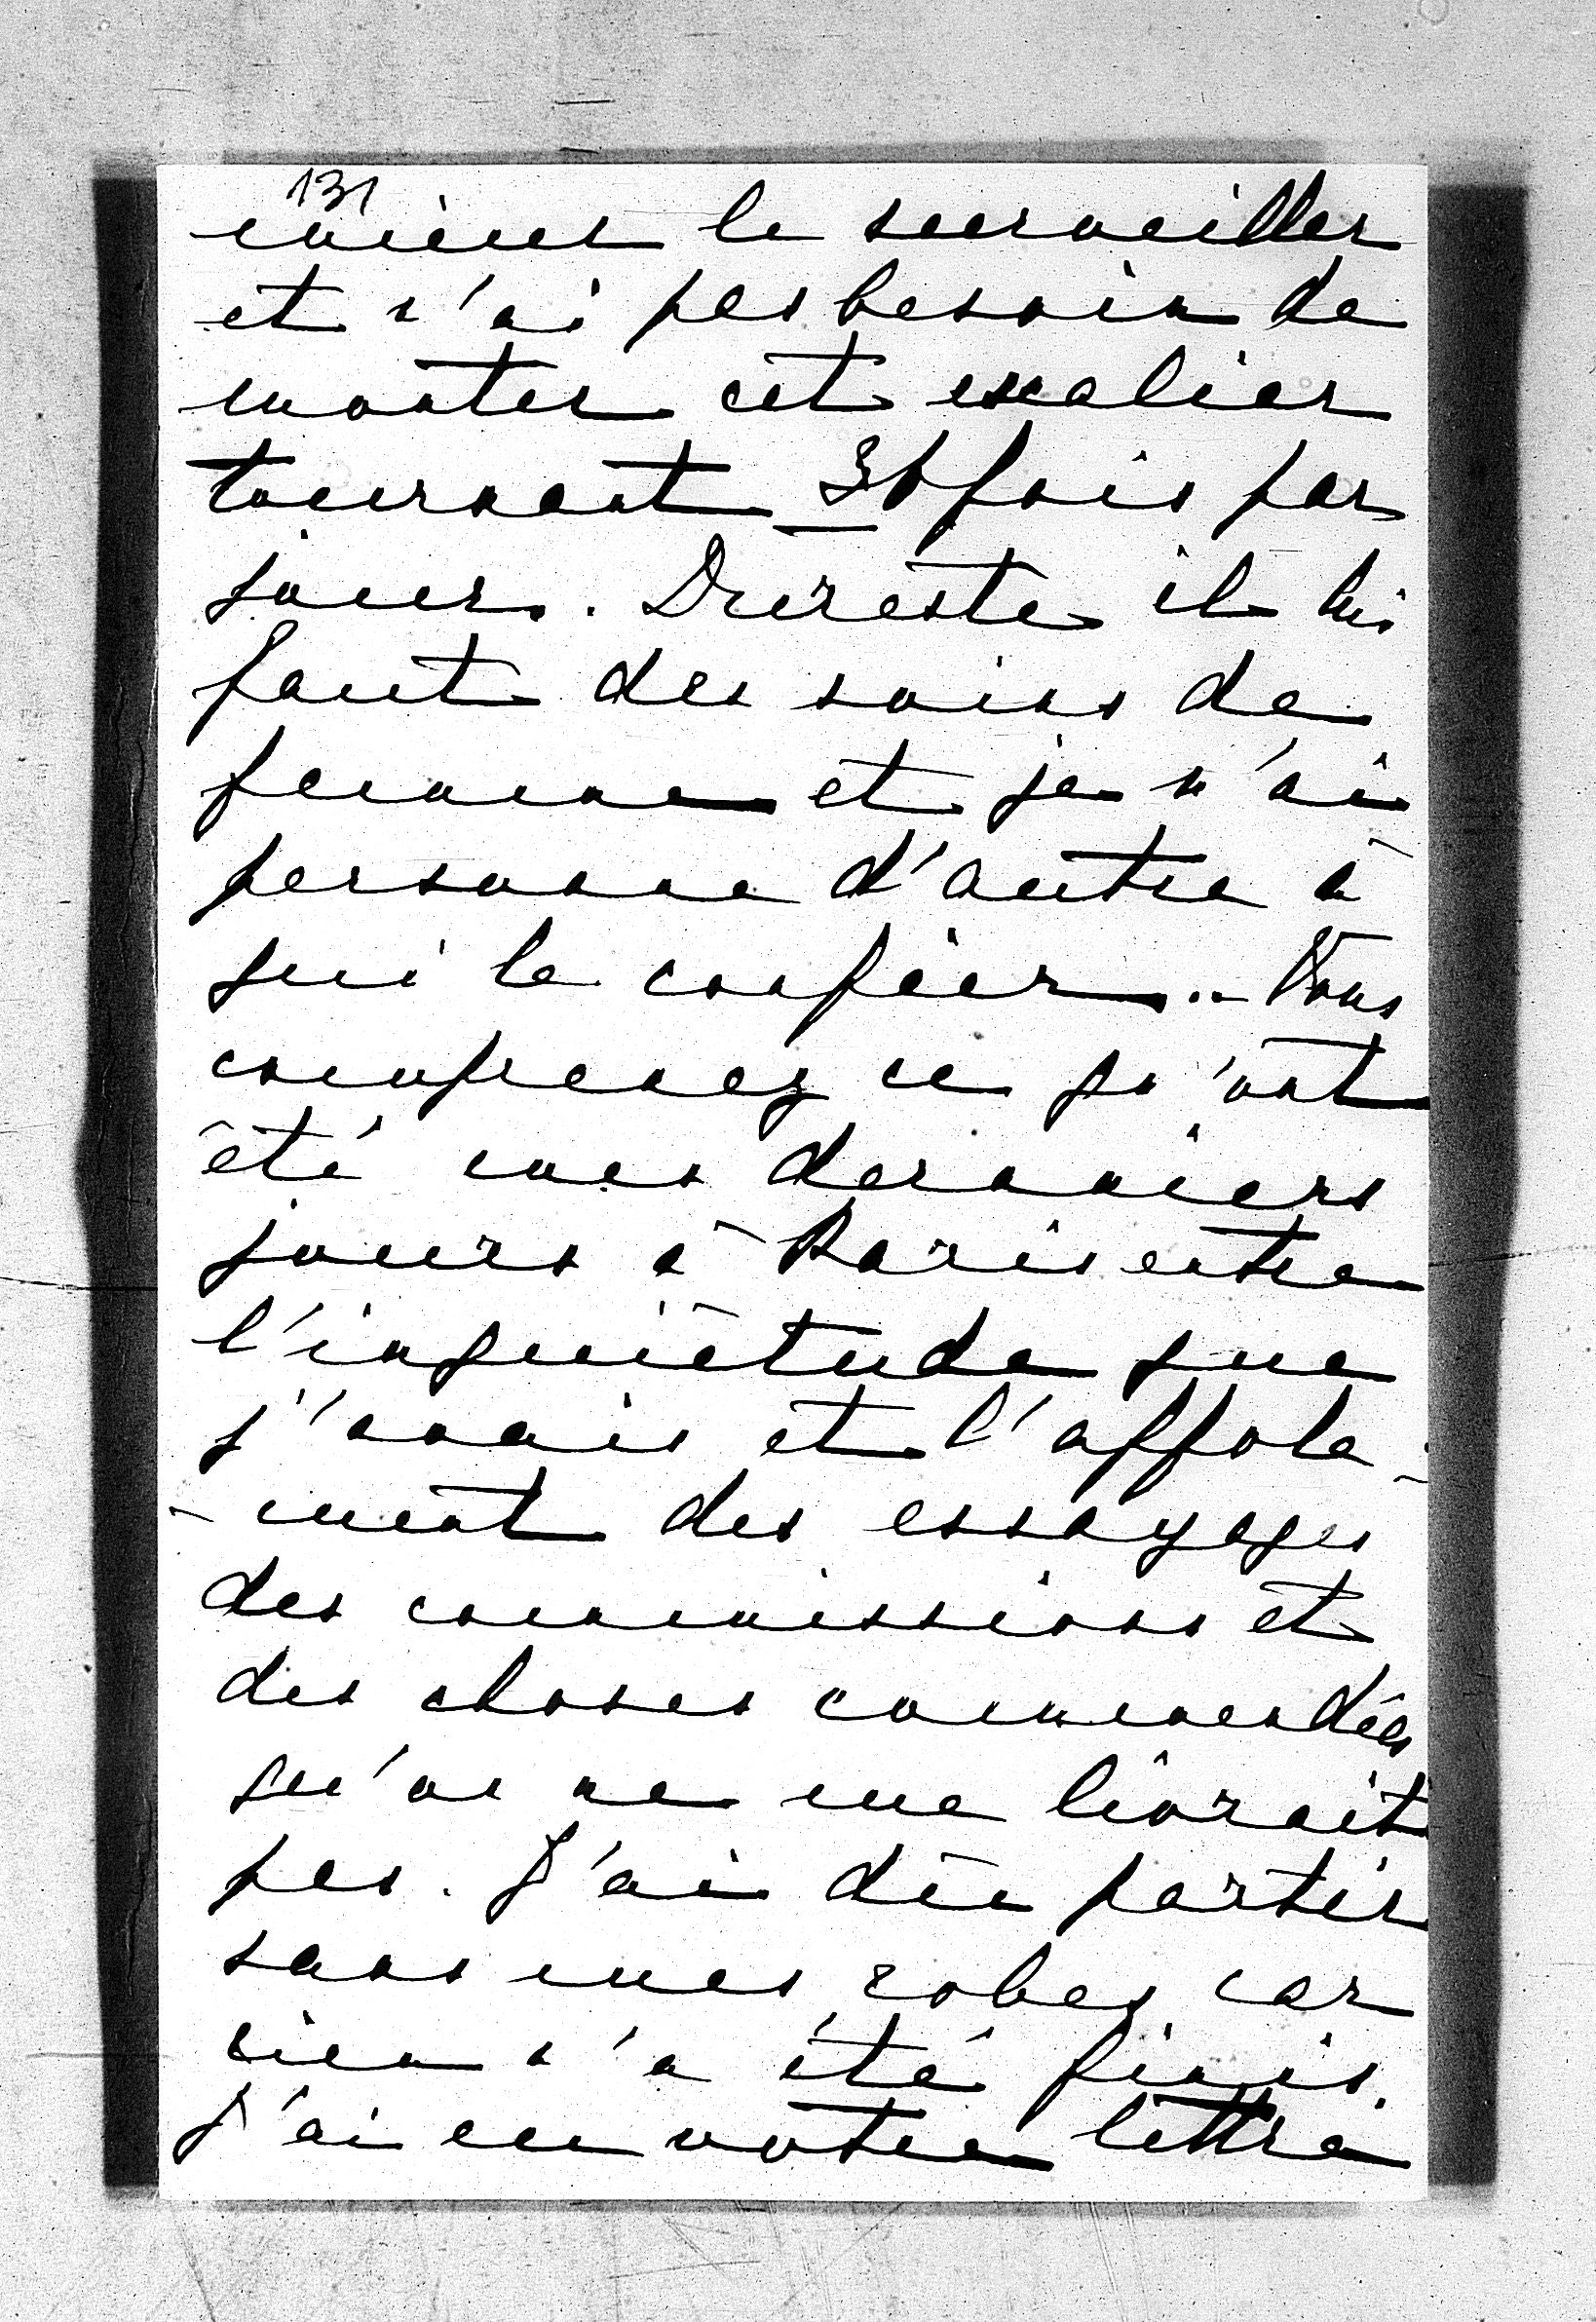 131
mieux le surveiller
et n'ai pas besoin de
monter cet escalier
tournant 36 fois par
jour. Du reste il lui
faut des soins de
femme et je n'ai
personne d'autre à
qui le confier.. Vous
comprenez ce qu'ont
été mes derniers
jours à Paris entre
l'inquiétude que
j'avais et l'affole-
-ment des essayages
des commissions et
des choses commandées
qu'on ne me livrait
pas. J'ai dû partir
sans mes robes car
rien n'a été fini.
J'ai eu votre lettre